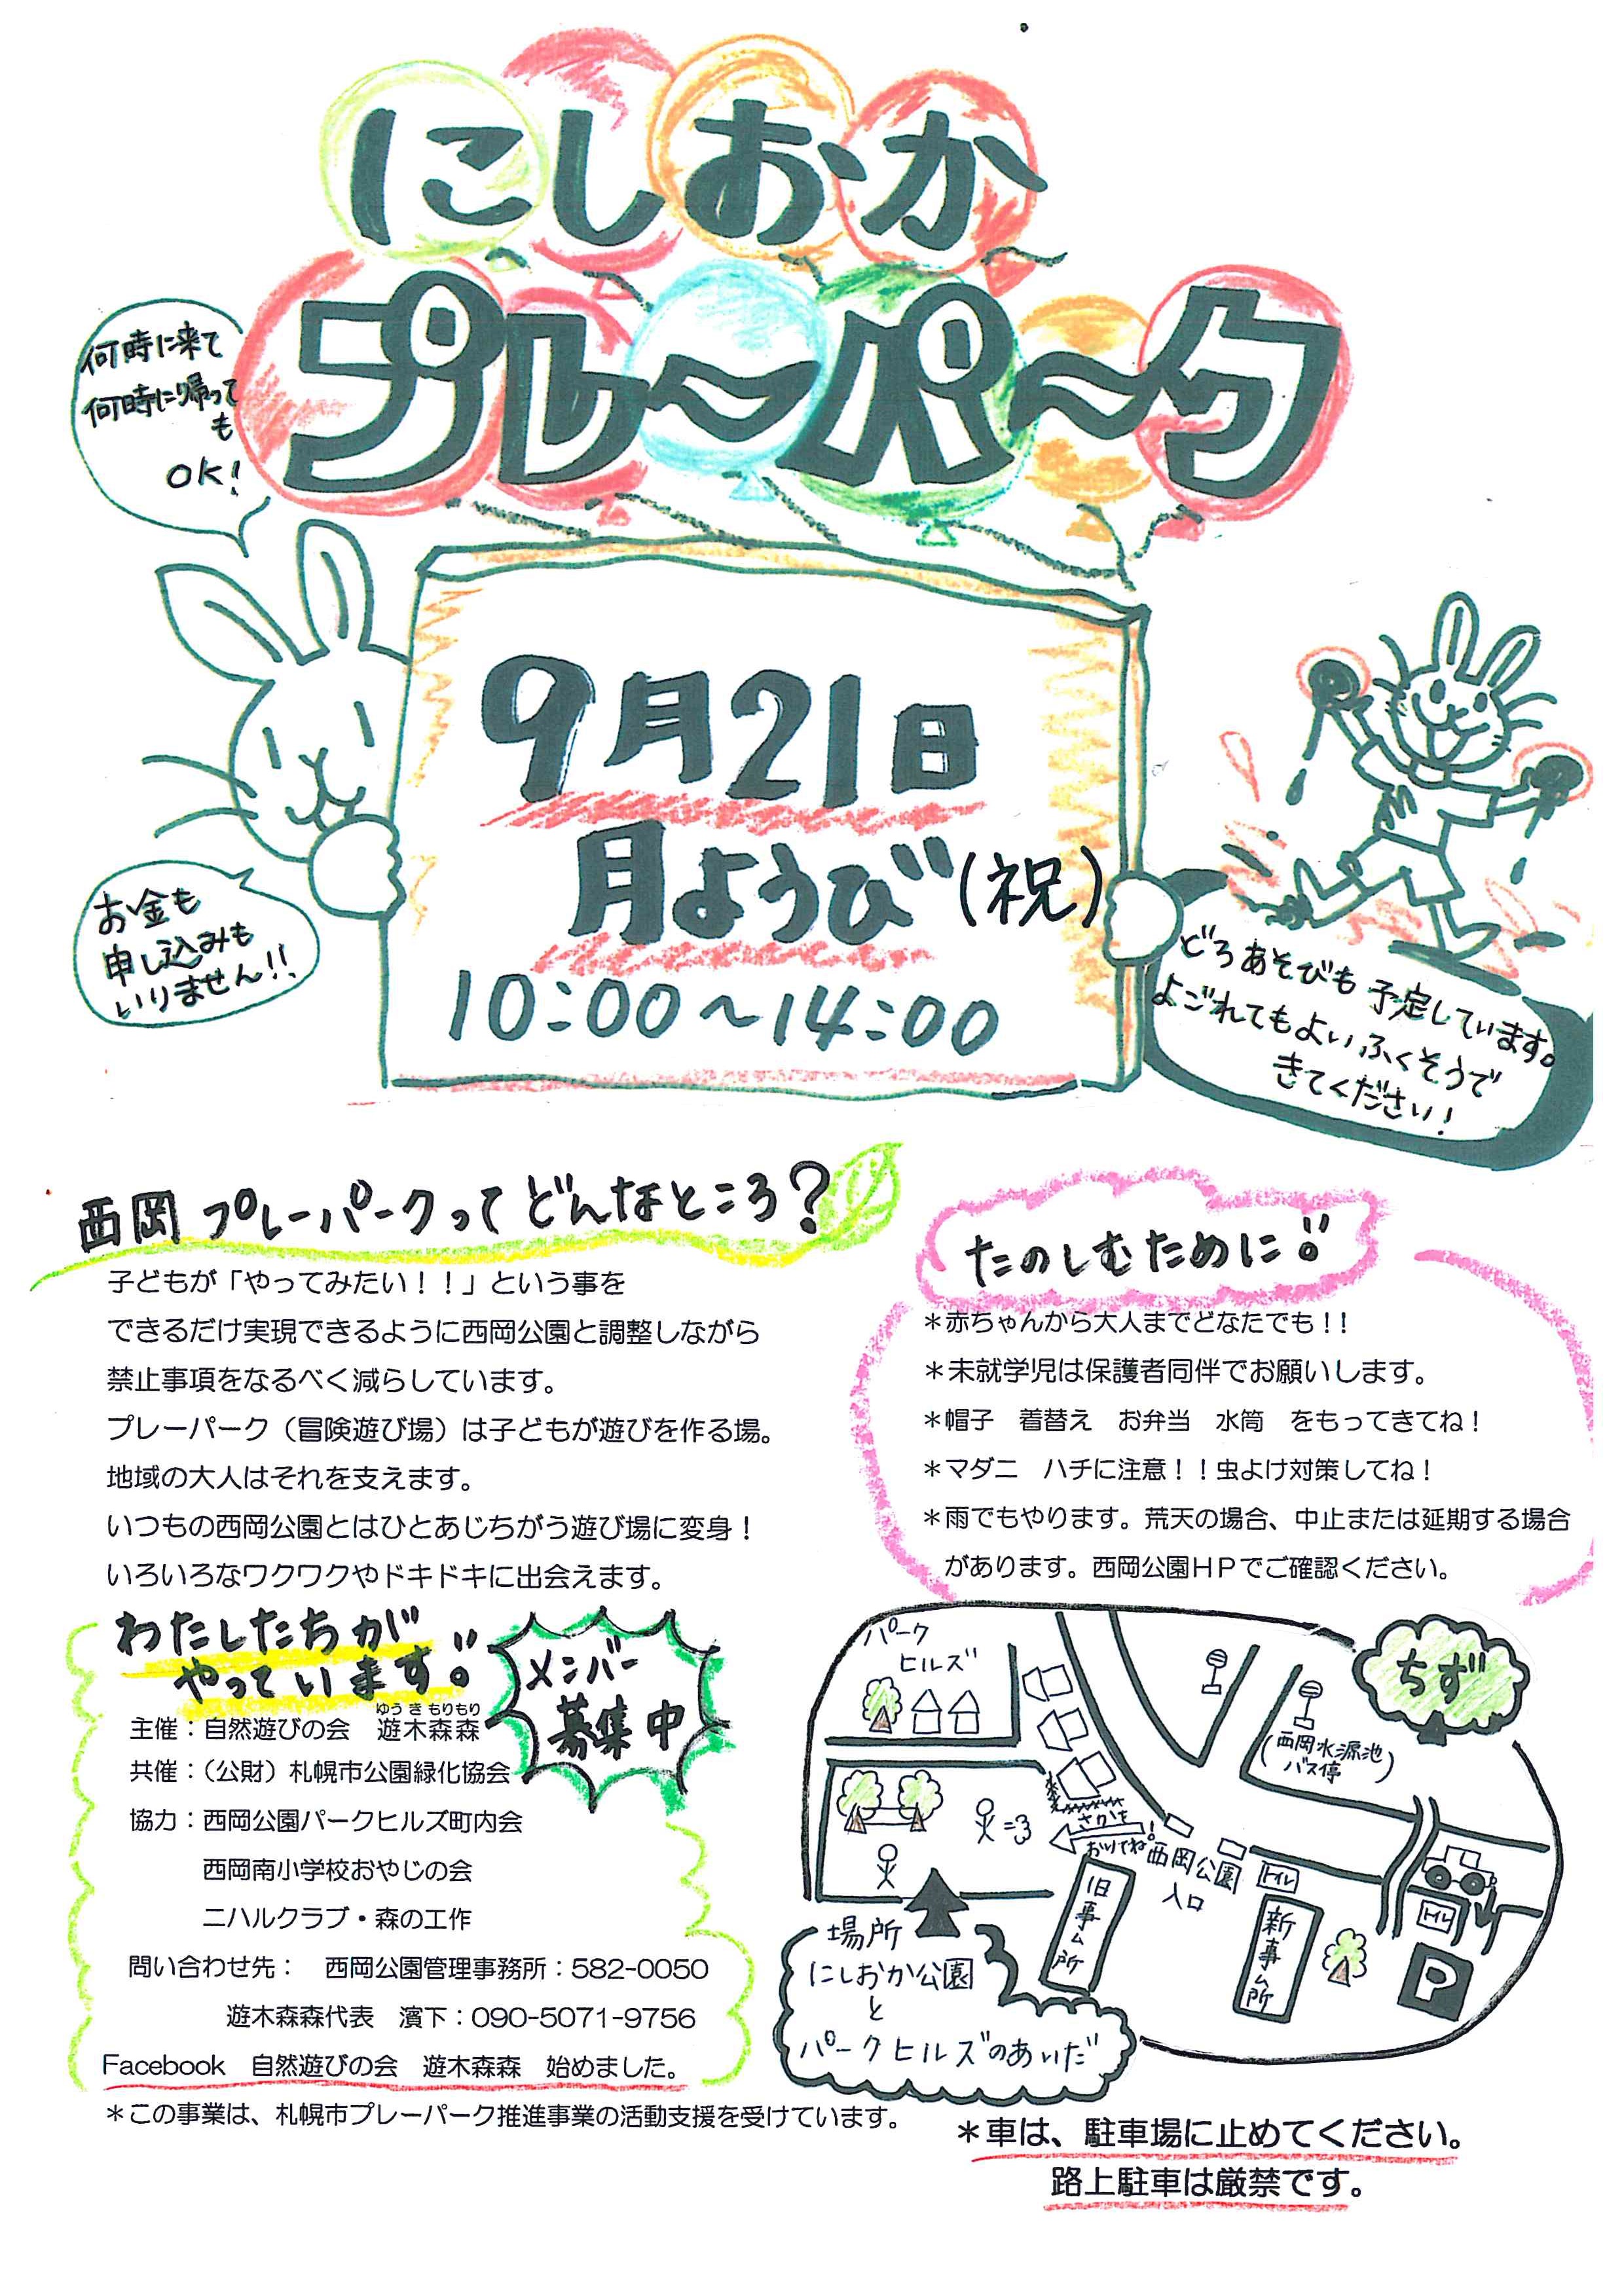 にしおか
プレーパーク
何時に来て
何時に帰って
も
OK!
9月21日
月ようび(祝)
10:00～14:00
お金も
申し込みも
いりません!!
どろあそびも予定しています。
よごれてもよいふくそうで
きてください!
西岡プレーパークってどんなところ?
子どもが「やってみたい！！」という事を
できるだけ実現できるように西岡公園と調整しながら
禁止事項をなるべく減らしています。
プレーパーク（冒険遊び場）は子どもが遊びを作る場。
地域の大人はそれを支えます。
いつもの西岡公園とはひとあじちがう遊び場に変身！
いろいろなワクワクやドキドキに出会えます。
たのしむために!!
＊赤ちゃんから大人までどなたでも！！
＊未就学児は保護者同伴でお願いします。
＊帽子　着替え　お弁当　水筒　をもってきてね！
＊マダニ　ハチに注意！！虫よけ対策してね！
＊雨でもやります。荒天の場合、中止または延期する場合
があります。西岡公園ＨＰでご確認ください。
わたしたちが
やっています!!
メンバー
募集中
ゆう き もりもり
主催：自然遊びの会　遊木森森
共催：（公財）札幌市公園緑化協会
協力：西岡公園パークヒルズ町内会
西岡南小学校おやじの会
ニハルクラブ・森の工作
問い合わせ先：　西岡公園管理事務所：582-0050
遊木森森代表　濱下：090-5071-9756
Facebook　自然遊びの会　遊木森森　始めました。
＊この事業は、札幌市プレーパーク推進事業の活動支援を受けています。
ちず
パーク
ヒルズ
(西岡水源池
バス停)
さかを
おりてね!
西岡公園
入口
トイレ
トイレ
旧事ム所
新事ム所
P
場所
にしおか公園
と
パークヒルズのあいだ
＊車は、駐車場に止めてください。
路上駐車は厳禁です。